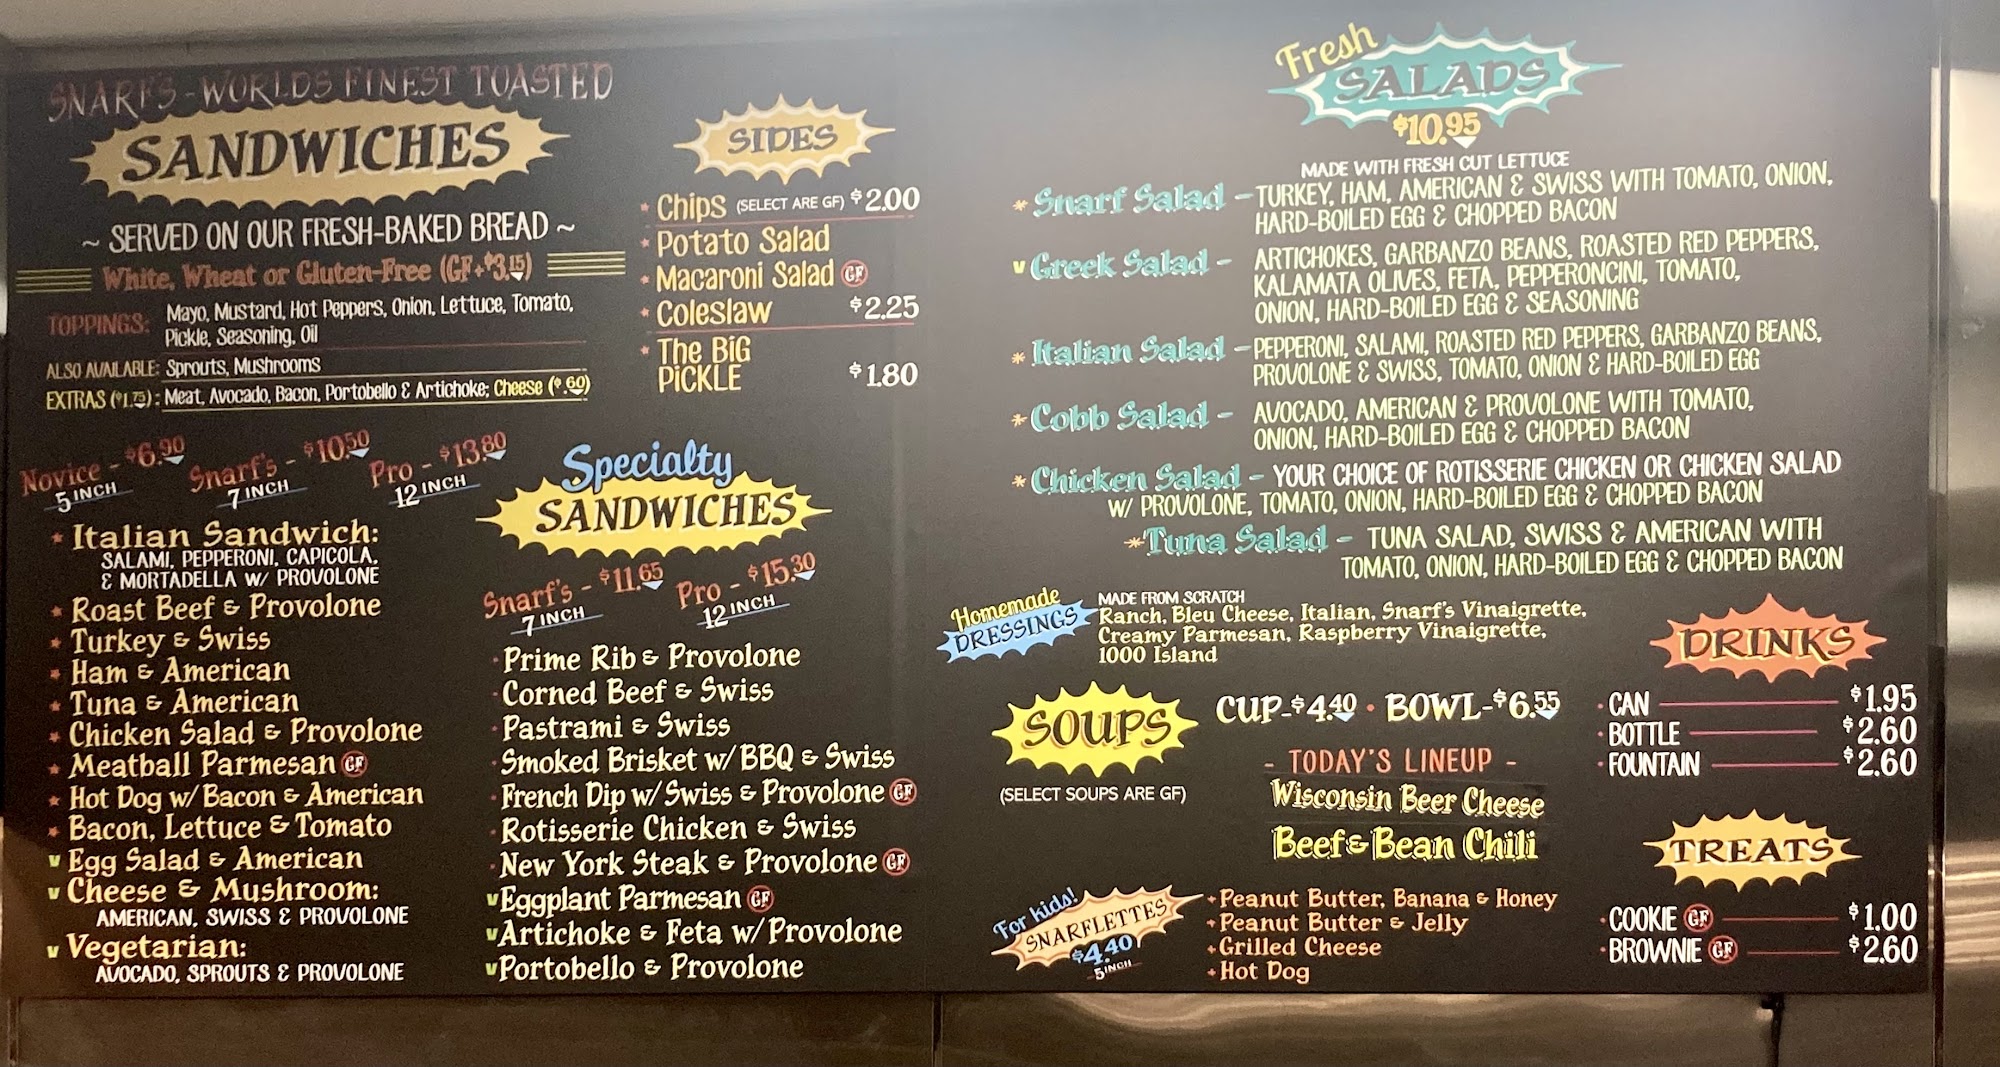 SNARF'S - WORLDS FINEST TOASTED
SANDWICHES
~ SERVED ON OUR FRESH-BAKED BREAD ~
White, Wheat or Gluten-Free (GF+$3.15)
TOPPINGS: Mayo, Mustard, Hot Peppers, Onion, Lettuce, Tomato,
Pickle, Seasoning, Oil
ALSO AVAILABLE: Sprouts, Mushrooms
EXTRAS ($1.75): Meat, Avocado, Bacon, Portobello & Artichoke; Cheese ($.60)
Novice - $6.90
5 INCH
Snarf's - $10.50
7 INCH
Pro - $13.80
12 INCH
* Italian Sandwich:
SALAMI, PEPPERONI, CAPICOLA,
& MORTADELLA W/ PROVOLONE
* Roast Beef & Provolone
* Turkey & Swiss
* Ham & American
* Tuna & American
* Chicken Salad & Provolone
* Meatball Parmesan GF
* Hot Dog w/ Bacon & American
* Bacon, Lettuce & Tomato
v Egg Salad & American
v Cheese & Mushroom:
AMERICAN, SWISS & PROVOLONE
v Vegetarian:
AVOCADO, SPROUTS & PROVOLONE
SIDES
* Chips (SELECT ARE GF) $2.00
* Potato Salad
* Macaroni Salad GF
* Coleslaw $2.25
* The BiG
PiCKLE $1.80
Specialty
SANDWICHES
Snarf's - $11.65
7 INCH
Pro - $15.30
12 INCH
· Prime Rib & Provolone
· Corned Beef & Swiss
· Pastrami & Swiss
· Smoked Brisket w/ BBQ & Swiss
· French Dip w/ Swiss & Provolone GF
· Rotisserie Chicken & Swiss
· New York Steak & Provolone GF
v Eggplant Parmesan GF
v Artichoke & Feta w/ Provolone
v Portobello & Provolone
Fresh
SALADS
$10.95
MADE WITH FRESH CUT LETTUCE
* Snarf Salad - TURKEY, HAM, AMERICAN & SWISS WITH TOMATO, ONION,
HARD-BOILED EGG & CHOPPED BACON
v Greek Salad - ARTICHOKES, GARBANZO BEANS, ROASTED RED PEPPERS,
KALAMATA OLIVES, FETA, PEPPERONCINI, TOMATO,
ONION, HARD-BOILED EGG & SEASONING
* Italian Salad - PEPPERONI, SALAMI, ROASTED RED PEPPERS, GARBANZO BEANS,
PROVOLONE & SWISS, TOMATO, ONION & HARD-BOILED EGG
* Cobb Salad - AVOCADO, AMERICAN & PROVOLONE WITH TOMATO,
ONION, HARD-BOILED EGG & CHOPPED BACON
* Chicken Salad - YOUR CHOICE OF ROTISSERIE CHICKEN OR CHICKEN SALAD
W/ PROVOLONE, TOMATO, ONION, HARD-BOILED EGG & CHOPPED BACON
* Tuna Salad - TUNA SALAD, SWISS & AMERICAN WITH
TOMATO, ONION, HARD-BOILED EGG & CHOPPED BACON
Homemade
DRESSINGS
MADE FROM SCRATCH
Ranch, Bleu Cheese, Italian, Snarf's Vinaigrette,
Creamy Parmesan, Raspberry Vinaigrette,
1000 Island
SOUPS
(SELECT SOUPS ARE GF)
CUP-$4.40 · BOWL-$6.55
- TODAY'S LINEUP -
Wisconsin Beer Cheese
Beef & Bean Chili
For kids!
SNARFLETTES
$4.40
5 INCH
+ Peanut Butter, Banana & Honey
+ Peanut Butter & Jelly
+ Grilled Cheese
+ Hot Dog
DRINKS
· CAN $1.95
· BOTTLE $2.60
· FOUNTAIN $2.60
TREATS
· COOKIE GF $1.00
· BROWNIE GF $2.60